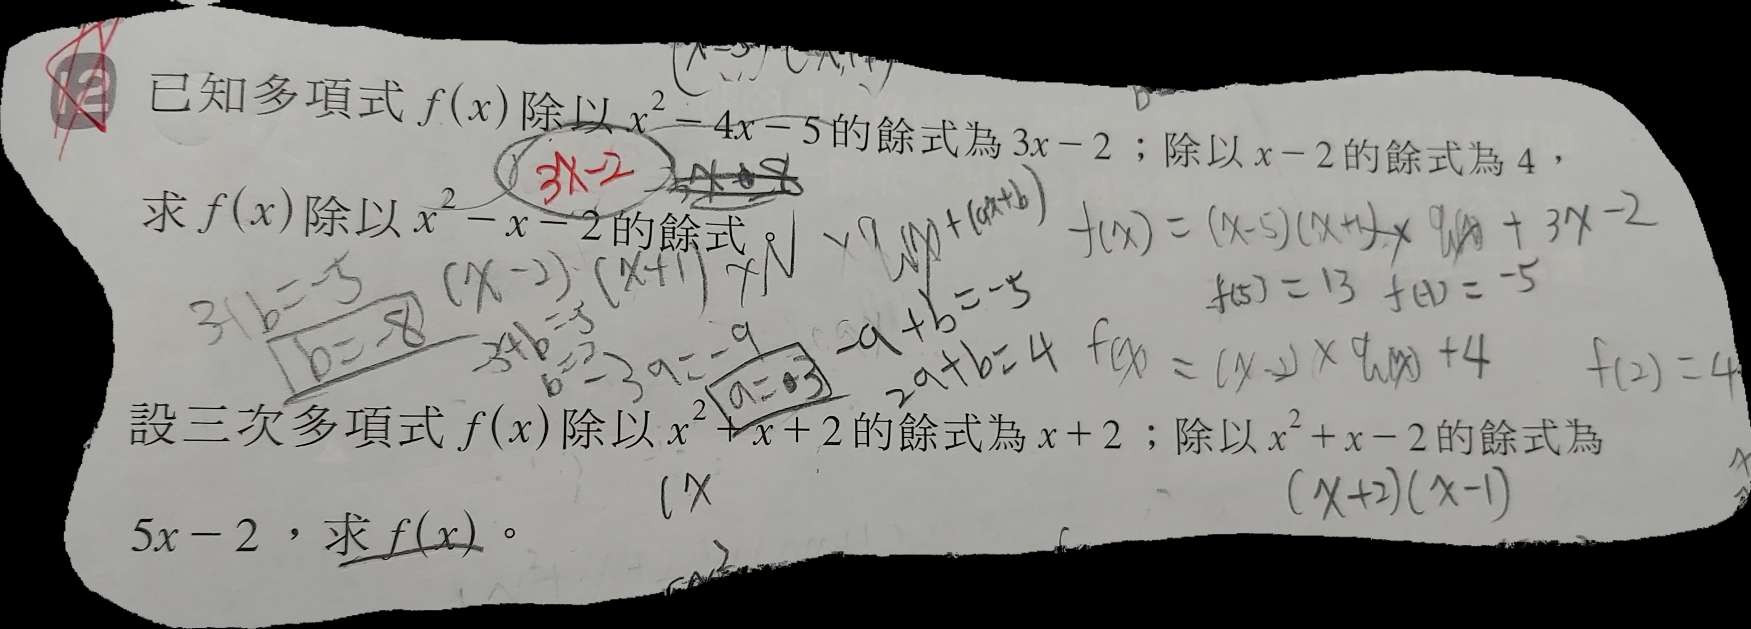 12 已知多項式 f(x) 除以 x² − 4x − 5 的餘式為 3x − 2；除以 x − 2 的餘式為 4，
3x-2
求 f(x) 除以 x² − x − 2 的餘式。
×q(x)+(ax+b)
f(x) = (x-5)(x+1) × q(x) + 3x -2
(x-2)(x+1)
f(5) = 13 f(-1) = -5
3+b=-5
b=-8
-3+b=-5
b=-2
-3a=-9
a=3
-a+b=-5
2a+b=4
f(x) = (x-2) × q(x) +4
f(2) = 4
設三次多項式 f(x) 除以 x² + x + 2 的餘式為 x + 2；除以 x² + x − 2 的餘式為
(x
(x+2)(x-1)
5x − 2，求 f(x)。